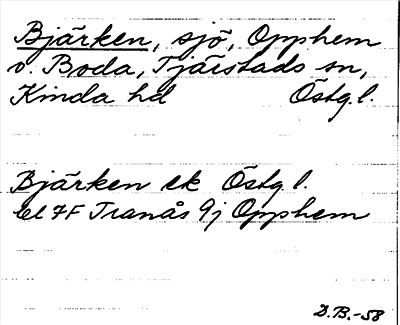 Bjärken, sjö, Opphem
v. Boda, Tjärstads sn,
Kinda hd Östg.l.
Bjärken ek Östg.l.
bl 7F Tranås 9j Opphem
D.B.-58